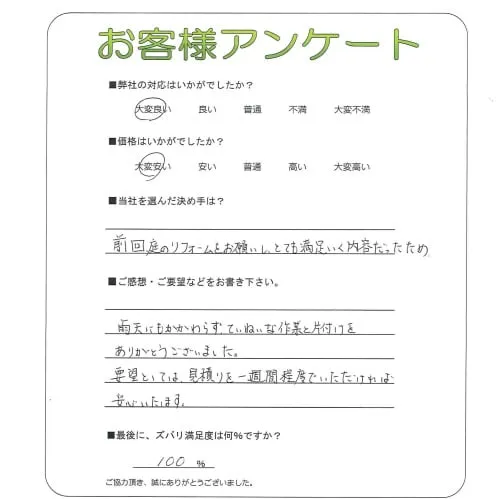 お客様アンケート
■弊社の対応はいかがでしたか?
大変良い 良い 普通 不満 大変不満
■価格はいかがでしたか?
大変安い 安い 普通 高い 大変高い
■当社を選んだ決め手は?
前回庭のリフォームをお願いし、とても満足いく内容だったため
■ご感想・ご要望などをお書き下さい。
雨天にもかかわらず、ていねいな作業と片付けを
ありがとうございました。
要望としては、見積りを一週間程度でいただければ
安心いたします。
■最後に、ズバリ満足度は何%ですか?
100 %
ご協力頂き、誠にありがとうございました。